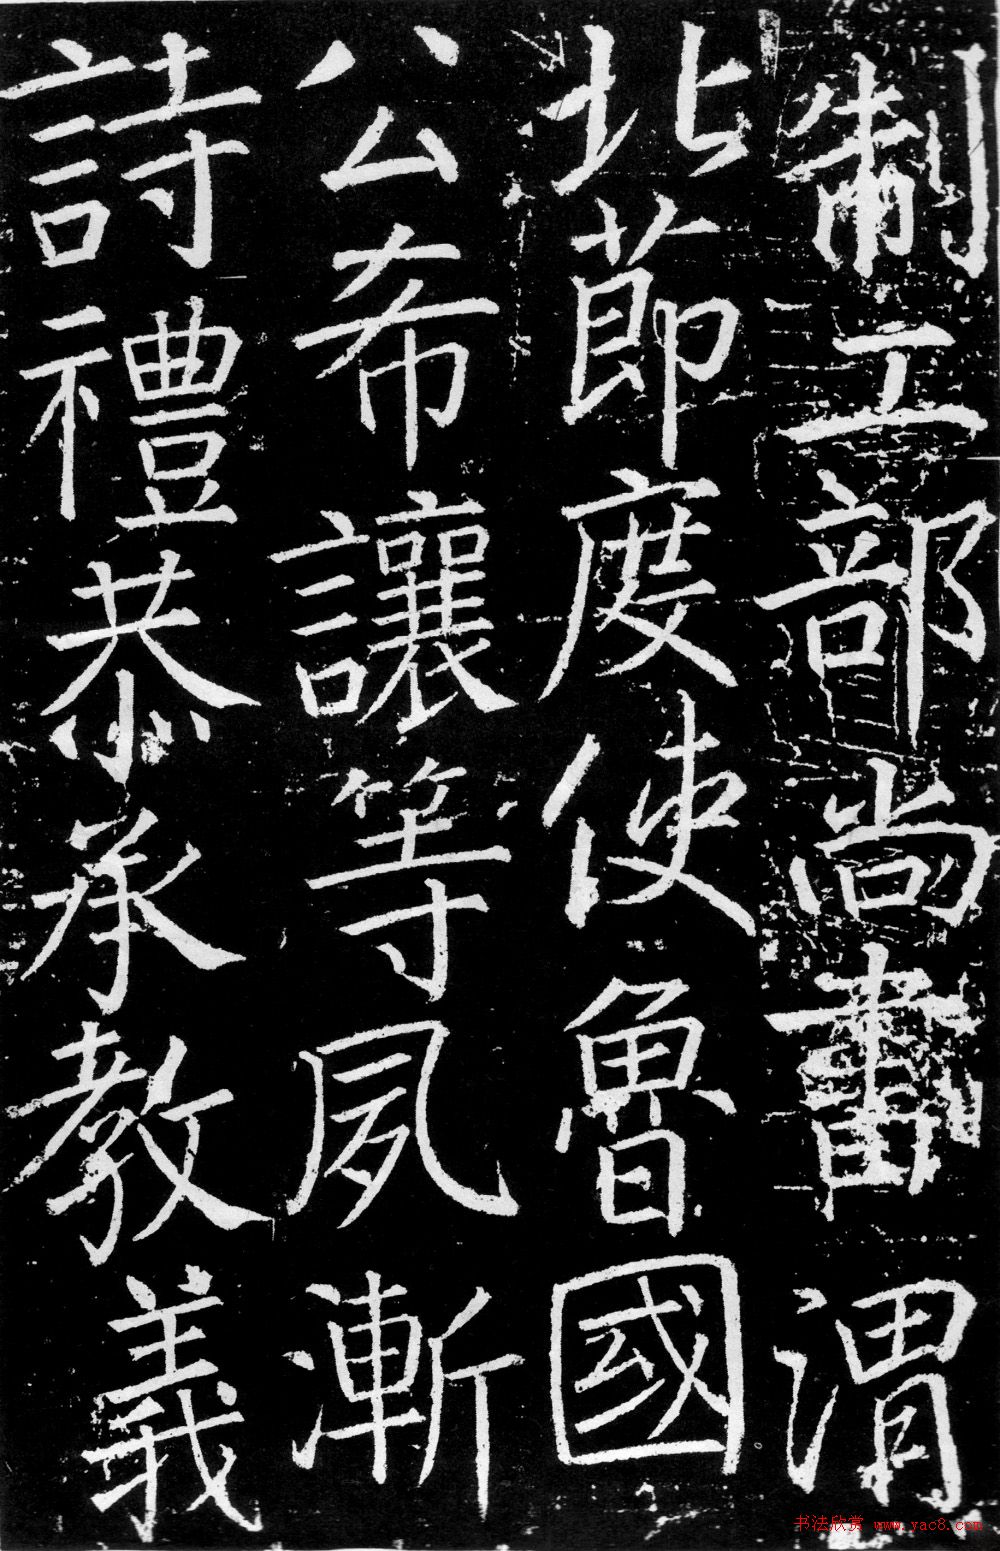 制工部尚書渭
北節度使魯國
公希讓等夙漸
詩禮恭承教義
书法欣赏 www.yac8.com